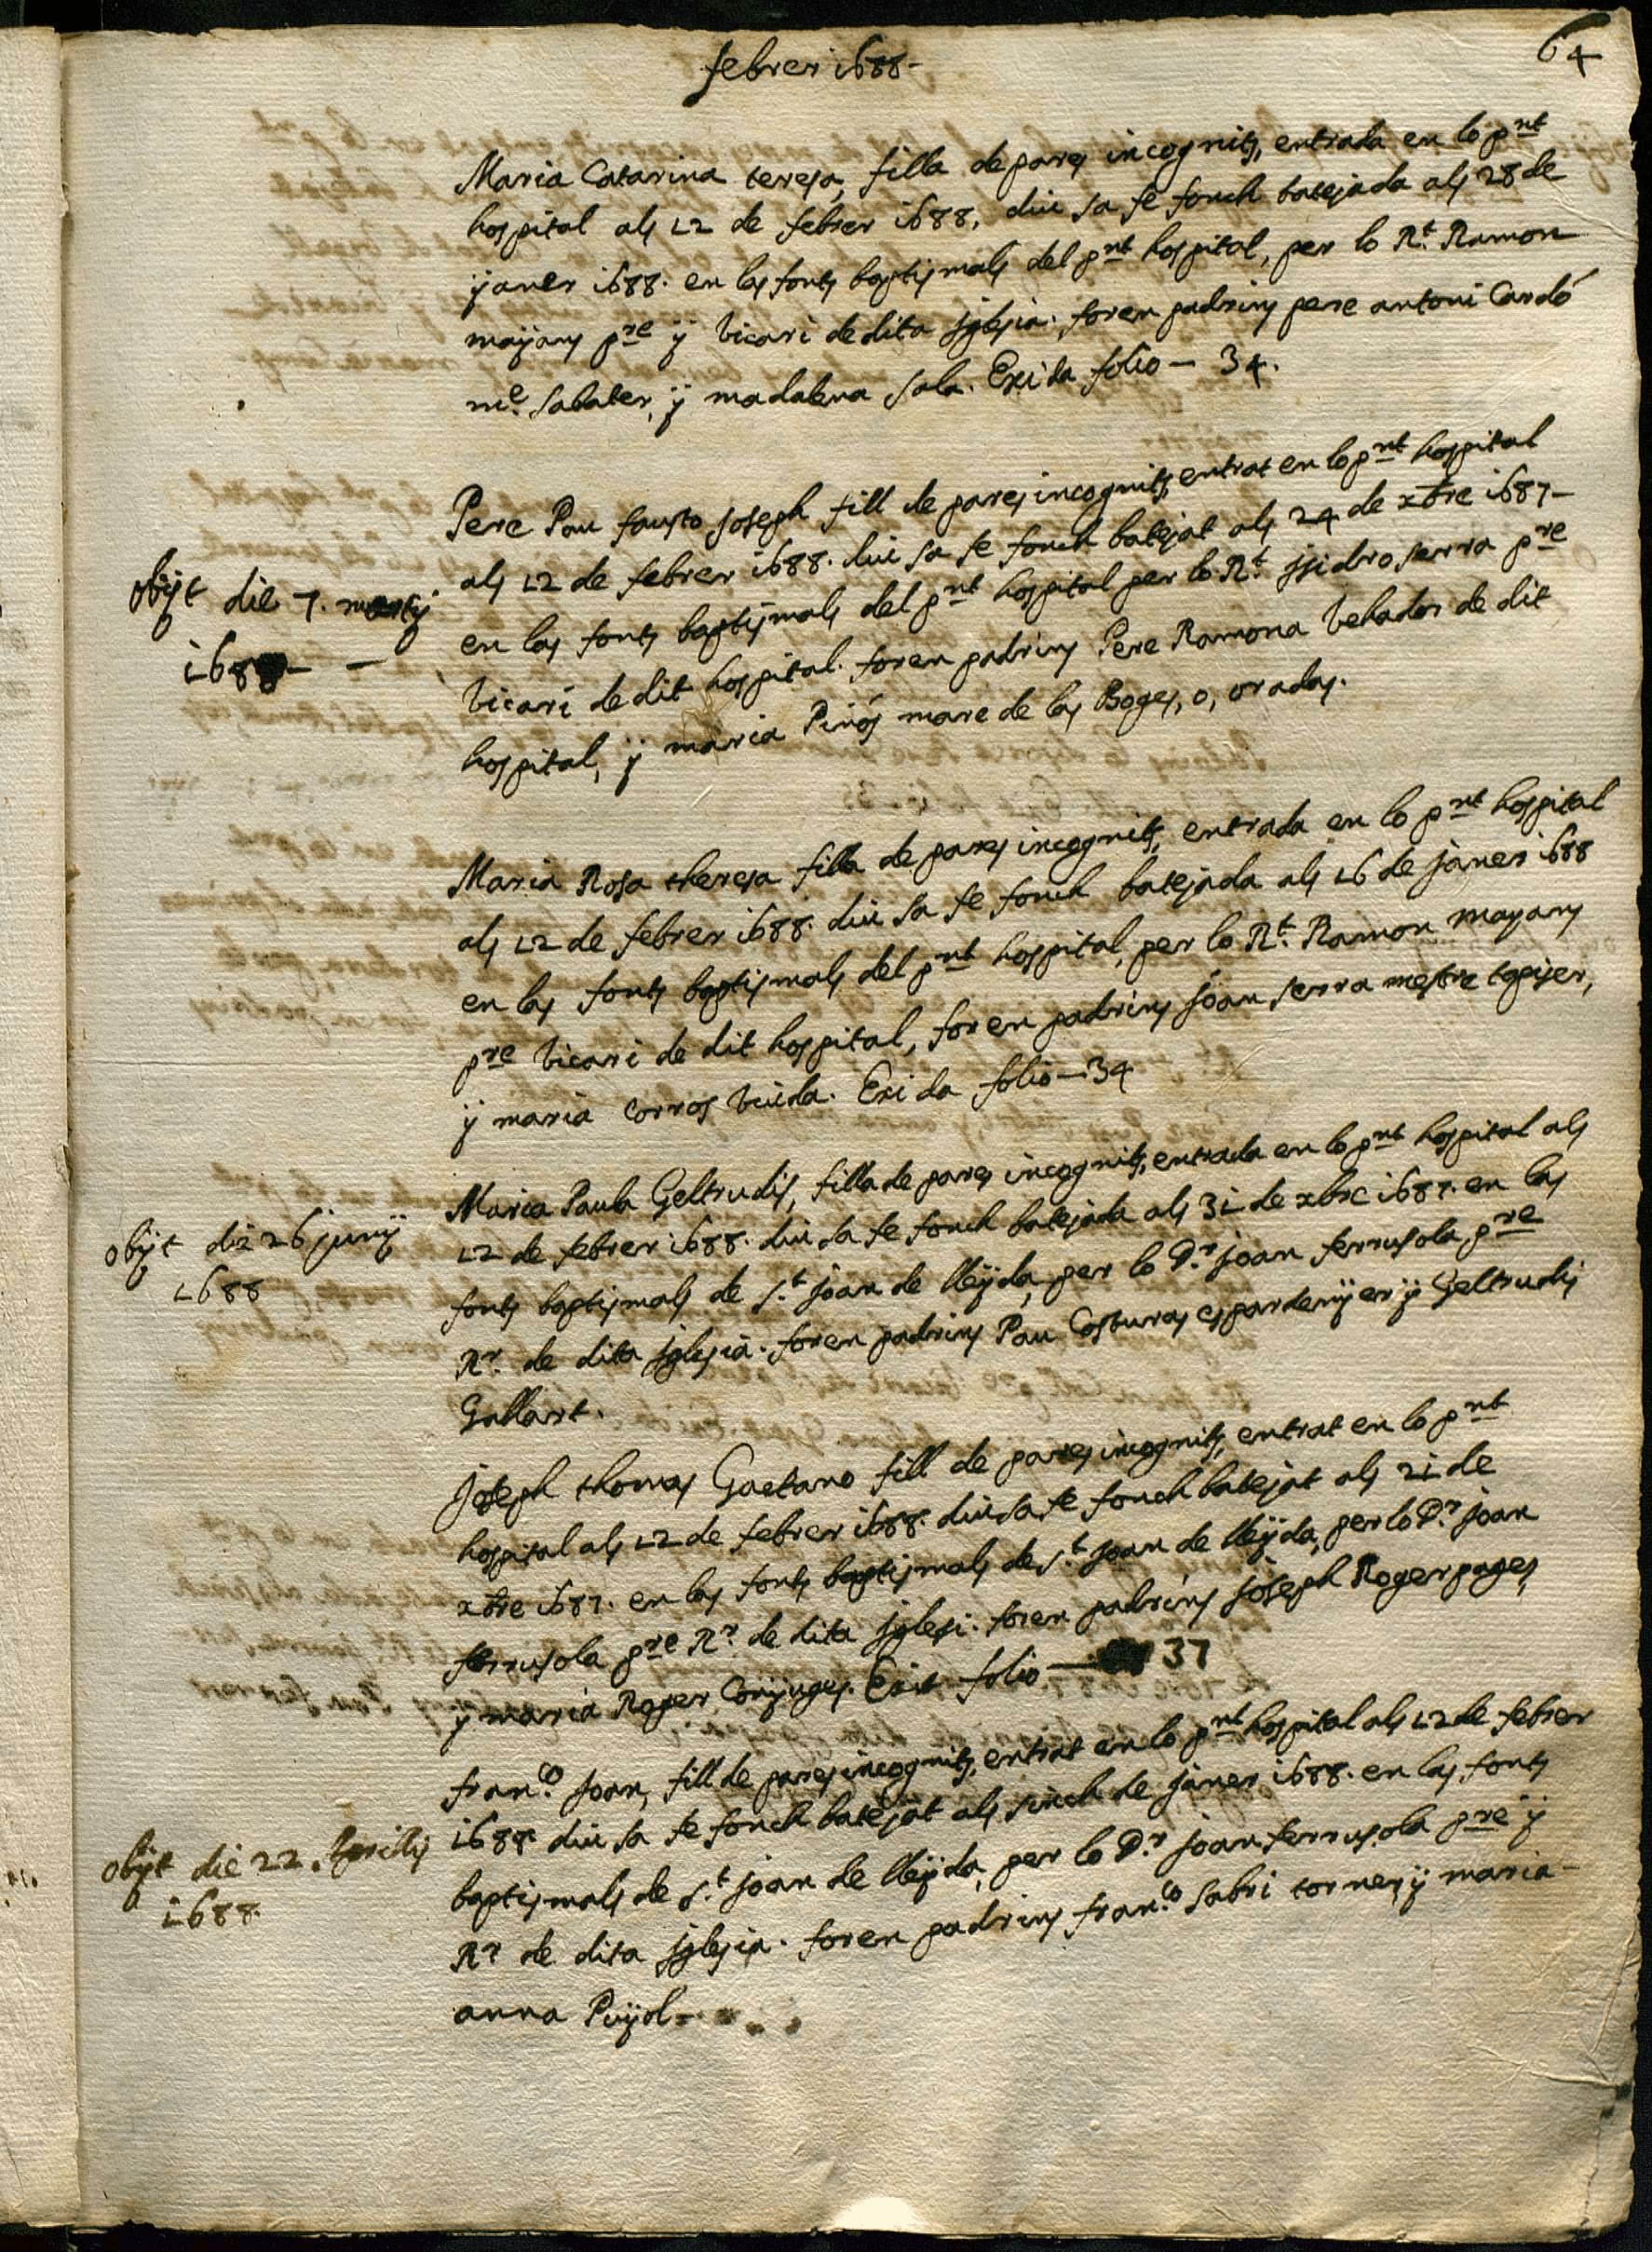 febrer 1688-
64
Maria Catarina teresa, filla de pares incognits, entrada en lo pnt
hospital als 12 de febrer 1688, diu sa fe fonch batejada als 28 de
ÿaner 1688. en las fonts baptismals del pnt hospital, per lo Rt. Ramon
maÿans pre ÿ vicari de dita Iglesia. foren padrins pere antoni Cardó
me. sabater, ÿ madalena sala. Exida folio — 34.
Pere Pau fausto Joseph fill de pares incognits, entrat en lo pnt hospital
als 12 de febrer 1688. diu sa fe fonch batejat als 24 de xbre 1687-
en las fonts baptismals del pnt hospital per lo Rt. Isidro serra pre
vicari de dit hospital. foren padrins Pere Ramona vehador de dit
hospital, ÿ maria Pinós mare de las Boges, o, oradas.
obÿt die 7. martÿ
1688 —
Maria Rosa theresa filla de pares incognits, entrada en lo pnt hospital
als 12 de febrer 1688. diu sa fe fonch batejada als 16 de janer 1688
en las fonts baptismals del pnt hospital, per lo Rt. Ramon mayans
pre vicari de dit hospital, foren padrins joan serra mestre tapiser,
ÿ maria corros viuda. Exida folio — 34
Maria Paula Geltrudis, filla de pares incognits, entrada en lo pnt hospital als
12 de febrer 1688. diu sa fe fonch batejada als 31 de xbre 1687. en las
fonts baptismals de St. joan de lleÿda, per lo Dr. joan ferrusola pre
Rr. de dita Iglesia. foren padrins Pau Costuras espardenÿer ÿ Geltrudis
Gallart.
obÿt die 26 junÿ
1688
Joseph thomas Gaetano fill de pares incognits, entrat en lo pnt
hospital als 12 de febrer 1688. diu sa fe fonch batejat als 21 de
xbre 1687. en las fonts baptismals de St. joan de lleÿda, per lo Dr. joan
ferrusola pre Rr. de dita Iglesi. foren padrins joseph Roger pages,
ÿ maria Roger Conjuges. Exit folio — 37
franco. joan, fill de pares incognits, entrat en lo pnt hospital als 12 de febrer
1688. diu sa fe fonch batejat als sinch de janer 1688. en las fonts
baptismals de St. joan de lleÿda, per lo Dr. joan ferrusola pre ÿ
Rr. de dita Iglesia. foren padrins franco. sabri torner, ÿ maria-
anna Puÿol-
obÿt die 22. Aprilis
1688.